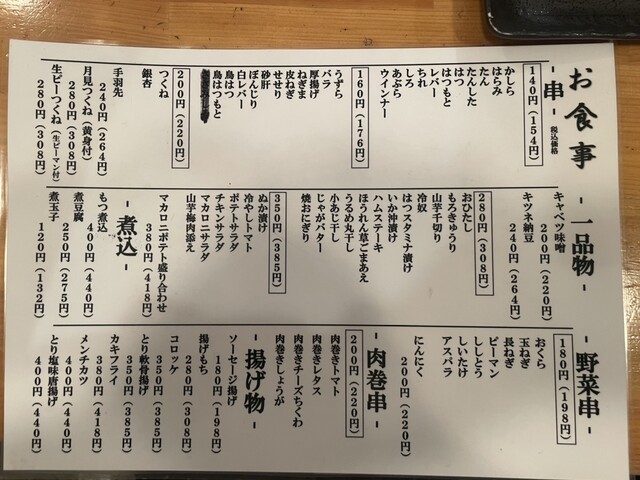 お食事
-串-
税込価格
140円(154円)
かしら
はらみ
たん
たんした
はつ
はつもと
レバー
ちれ
しろ
あぶら
ウインナー
160円(176円)
うずら
バラ
厚揚げ
ねぎま
皮ねぎ
せせり
砂肝
ぼんじり
白レバー
鳥はつ
鳥はつもと
200円(220円)
つくね
銀杏
手羽先
240円(264円)
月見つくね(黄身付)
280円(308円)
生ピーつくね(生ピーマン付)
280円(308円)
-一品物-
キャベツ味噌
200円(220円)
キツネ納豆
240円(264円)
280円(308円)
おひたし
もろきゅうり
山芋千切り
冷奴
はつスタミナ漬け
いか沖漬け
ハムステーキ
ほうれん草ごまあえ
うるめ丸干し
小あじ干し
じゃがバター
焼おにぎり
350円(385円)
ぬか漬け
冷やしトマト
ポテトサラダ
チキンサラダ
マカロニサラダ
山芋梅肉添え
マカロニポテト盛り合わせ
380円(418円)
-煮込-
もつ煮込
400円(440円)
煮豆腐
250円(275円)
煮玉子
120円(132円)
-野菜串-
180円(198円)
おくら
玉ねぎ
長ねぎ
ピーマン
ししとう
しいたけ
アスパラ
にんにく
200円(220円)
-肉巻串-
200円(220円)
肉巻きトマト
肉巻きレタス
肉巻きチーズちくわ
肉巻きしょうが
-揚げ物-
ソーセージ揚げ
180円(198円)
揚げもち
280円(308円)
コロッケ
350円(385円)
とり軟骨揚げ
350円(385円)
カキフライ
380円(418円)
メンチカツ
400円(440円)
とり塩味唐揚げ
400円(440円)